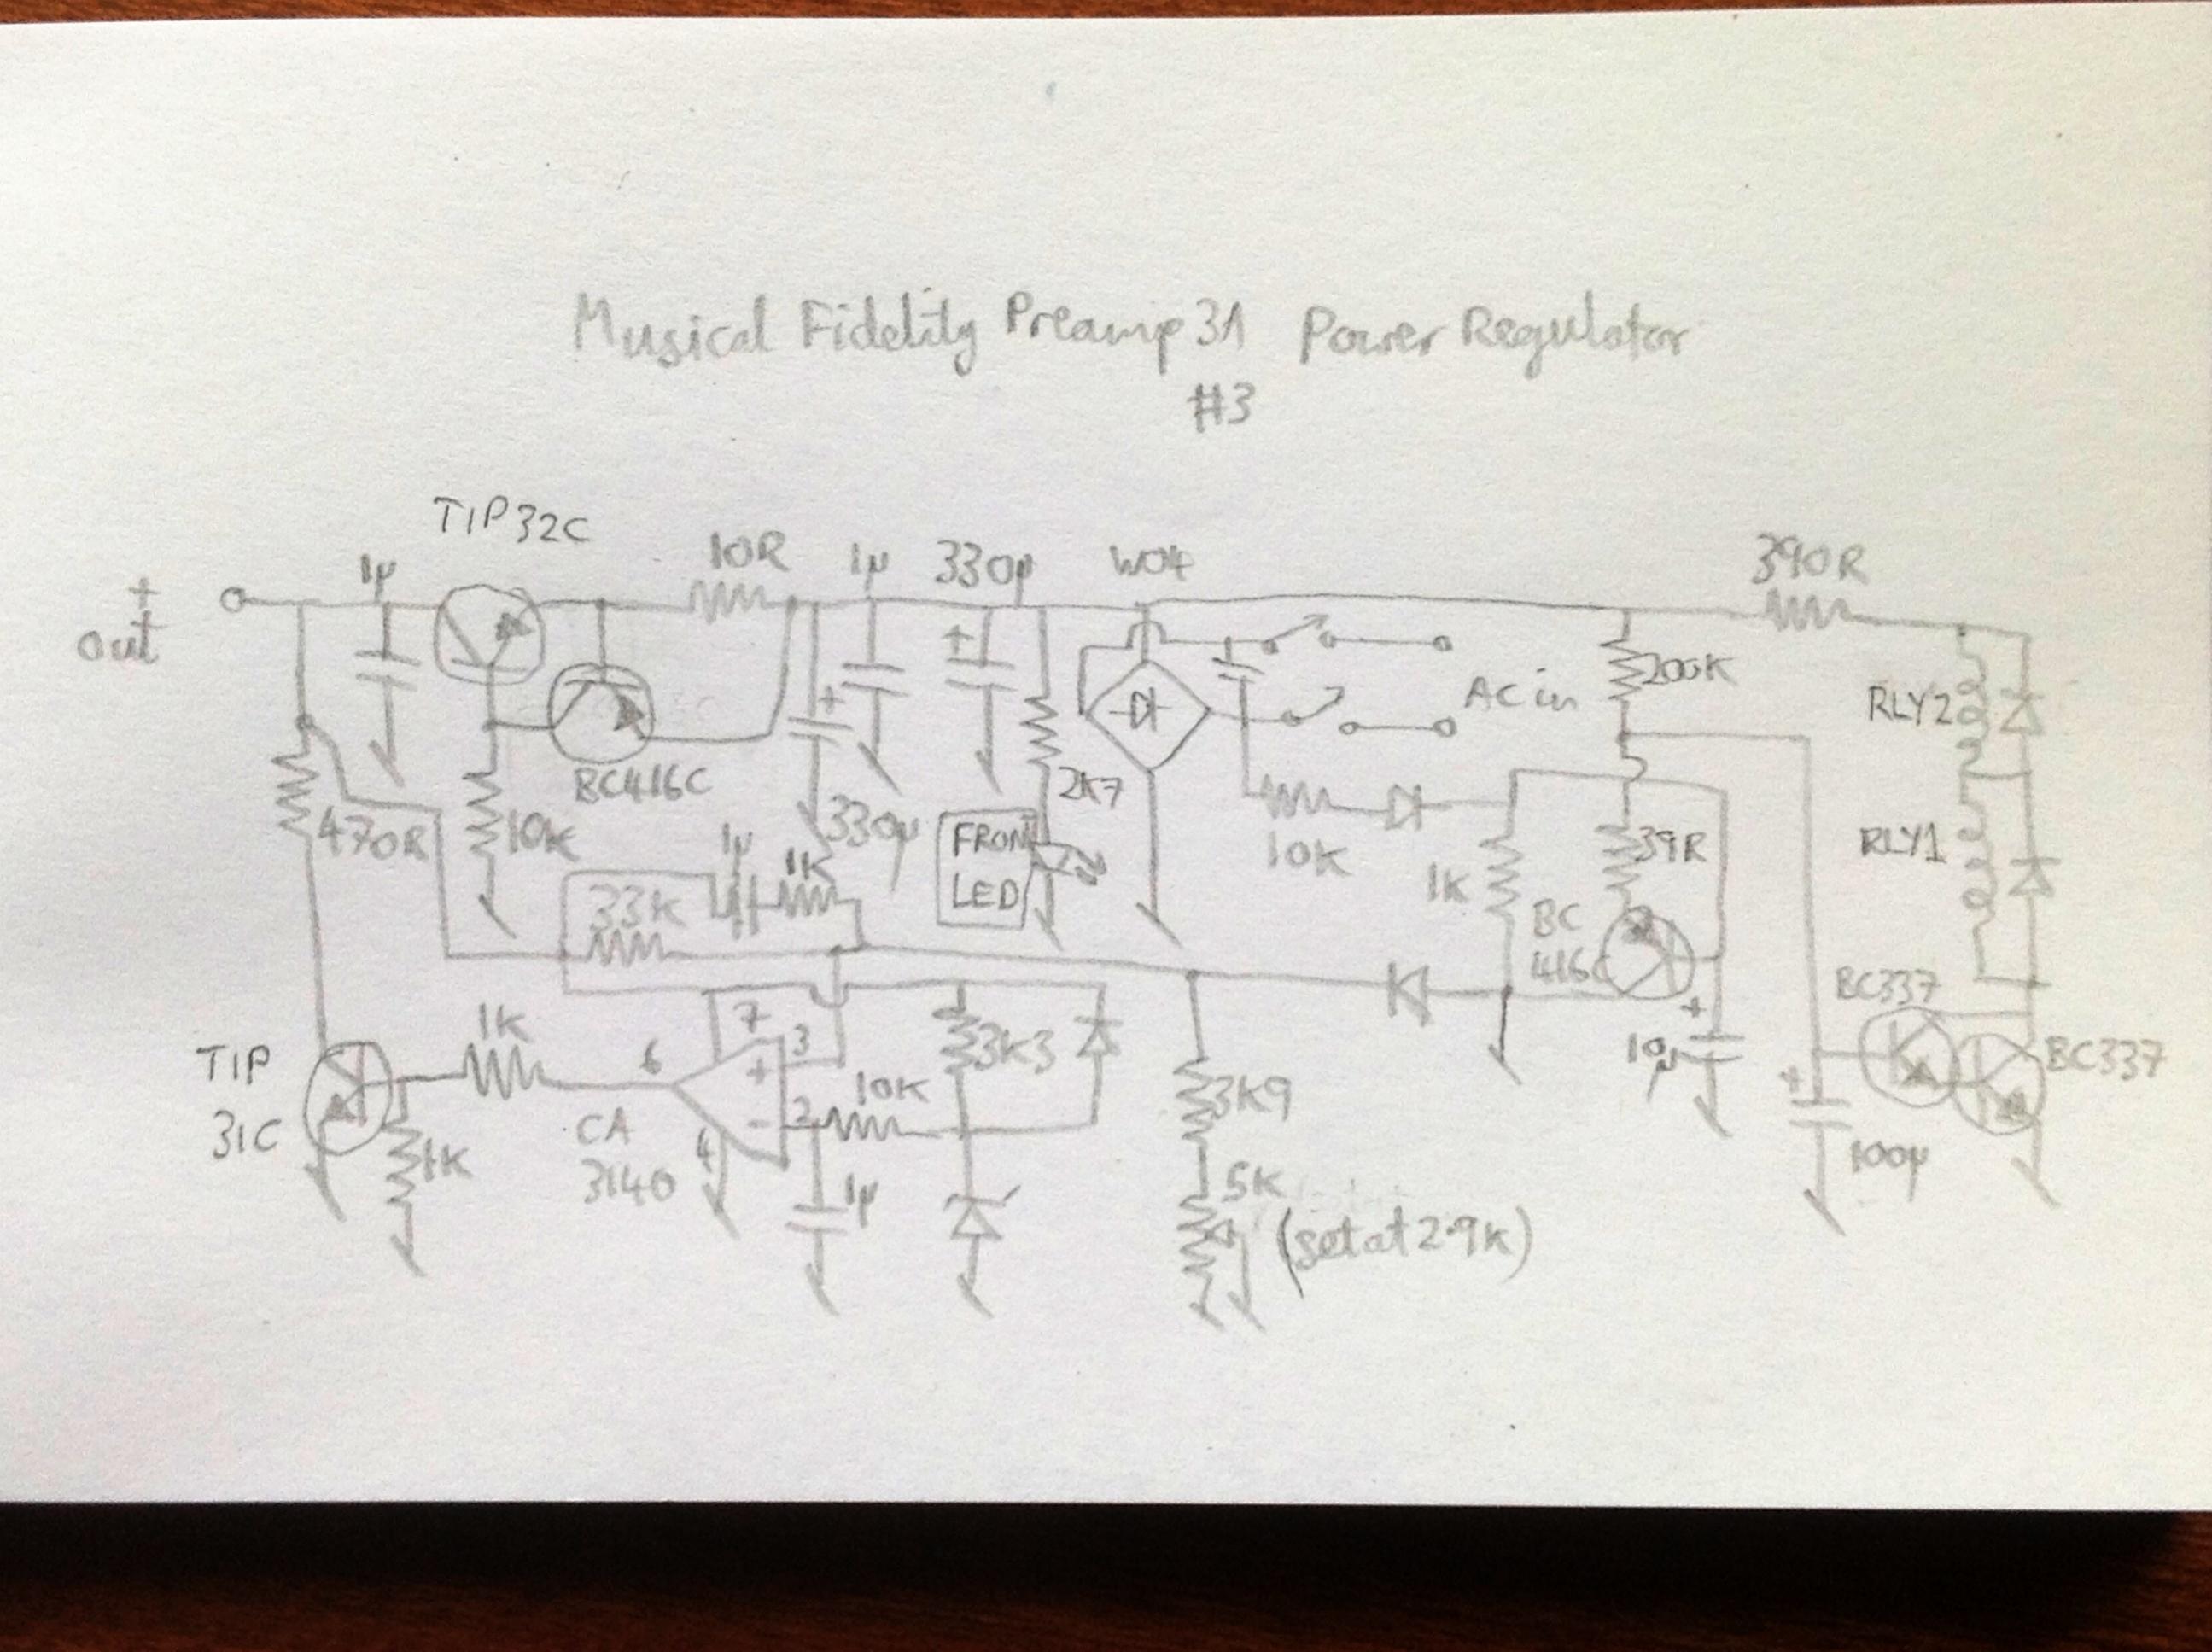 Musical Fidelity Preamp 3A Power Regulator
#3
TIP32C
+
out
1µ
10R
1µ
330µ
W04
390R
AC in
200K
RLY2
BC416C
+
+
330µ
2K7
470R
10K
1µ
1K
FRONT
LED
10K
1K
39R
RLY1
33K
BC
416C
BC337
BC337
TIP
31C
1K
6
7
3
+
3K3
+
10µ
+
10K
2
-
4
CA
3140
1K
1µ
3K9
5K
(set at 2.9K)
100µ